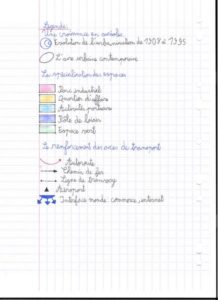 Légende:
Une croissance en auréole
Evolution de l'urbanisation de 1908 à 1995
L'aire urbaine contemporaine
La spécialisation des espaces
Parc industriel
Quartier d'affaire
Activité portuaire
Pôle de loisir
Espace vert
Le renforcement des axes de transport
Autoroute
Chemin de fer
Ligne de tramway
Aéroport
Interface monde: commerce, internet